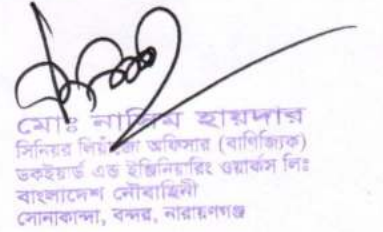 মোঃ নাসিম হায়দার
সিনিয়র অফিসার (বাণিজ্যিক)
ডকইয়ার্ড এন্ড ইঞ্জিনিয়ারিং ওয়ার্কস লিঃ
বাংলাদেশ নৌবাহিনী
সোনাকান্দা, বন্দর, নারায়ণগঞ্জ